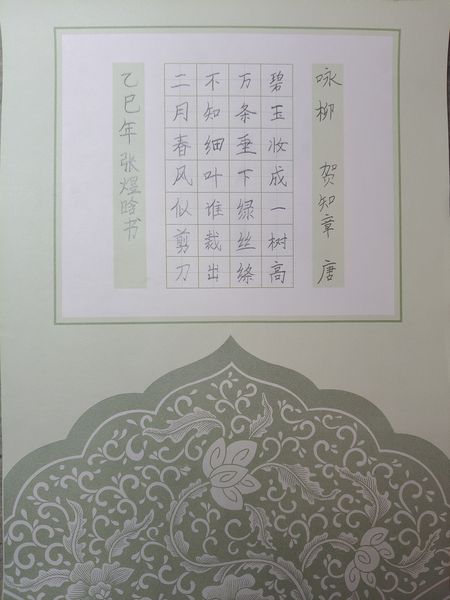 咏柳 贺知章 唐
碧玉妆成一树高
万条垂下绿丝绦
不知细叶谁裁出
二月春风似剪刀
乙巳年 张煜晗书